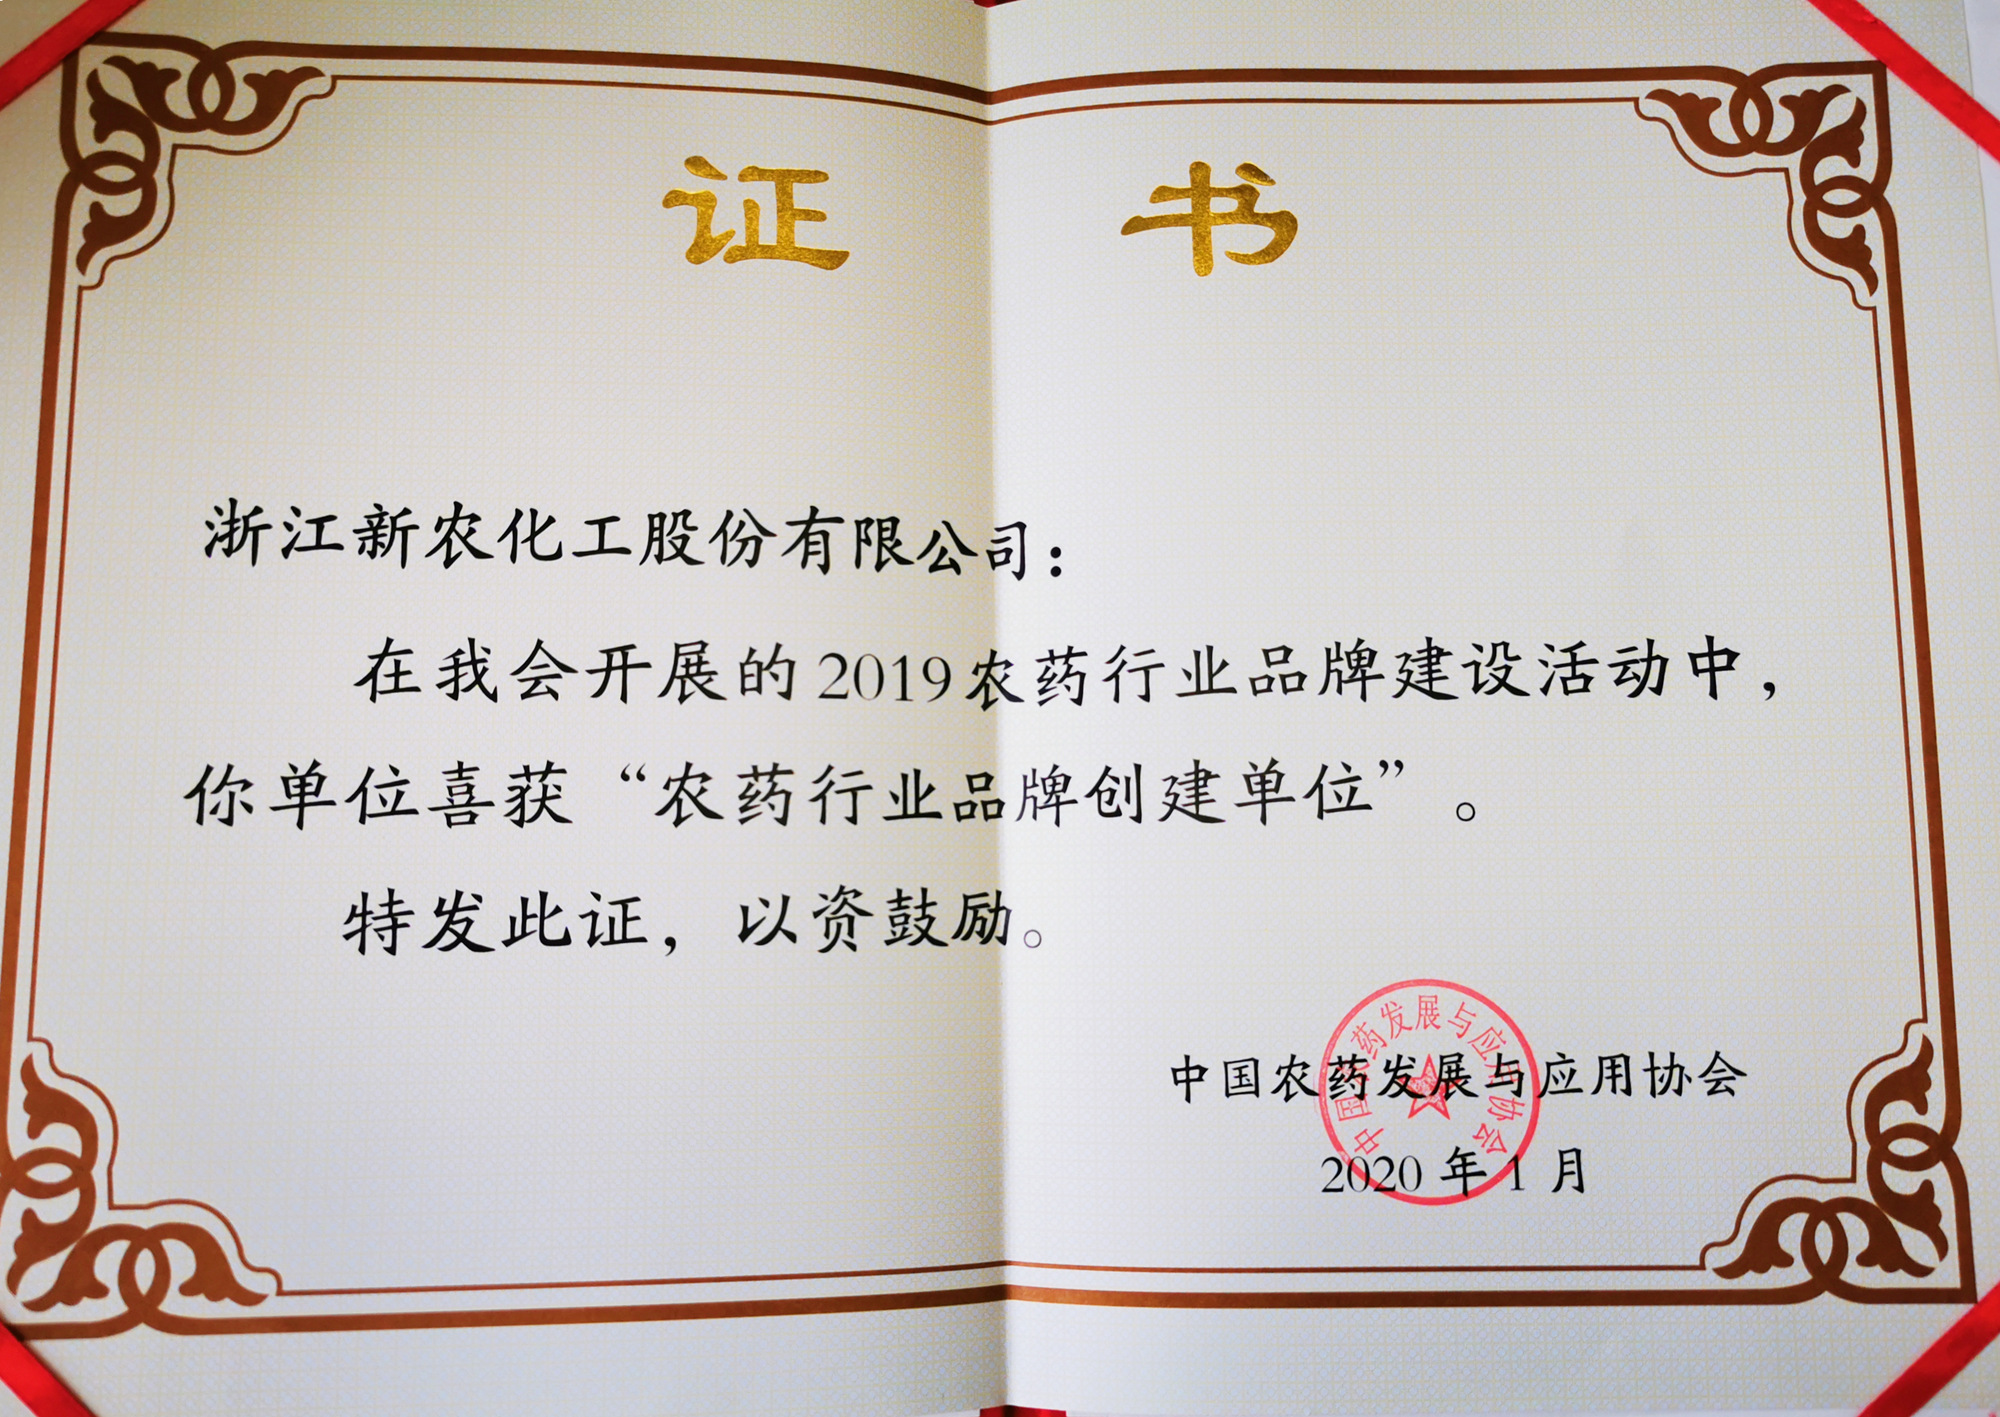 证 书
浙江新农化工股份有限公司：
在我会开展的2019农药行业品牌建设活动中，
你单位喜获“农药行业品牌创建单位”。
特发此证，以资鼓励。
中国农药发展与应用协会
中国农药发展与应用协会
2020年1月